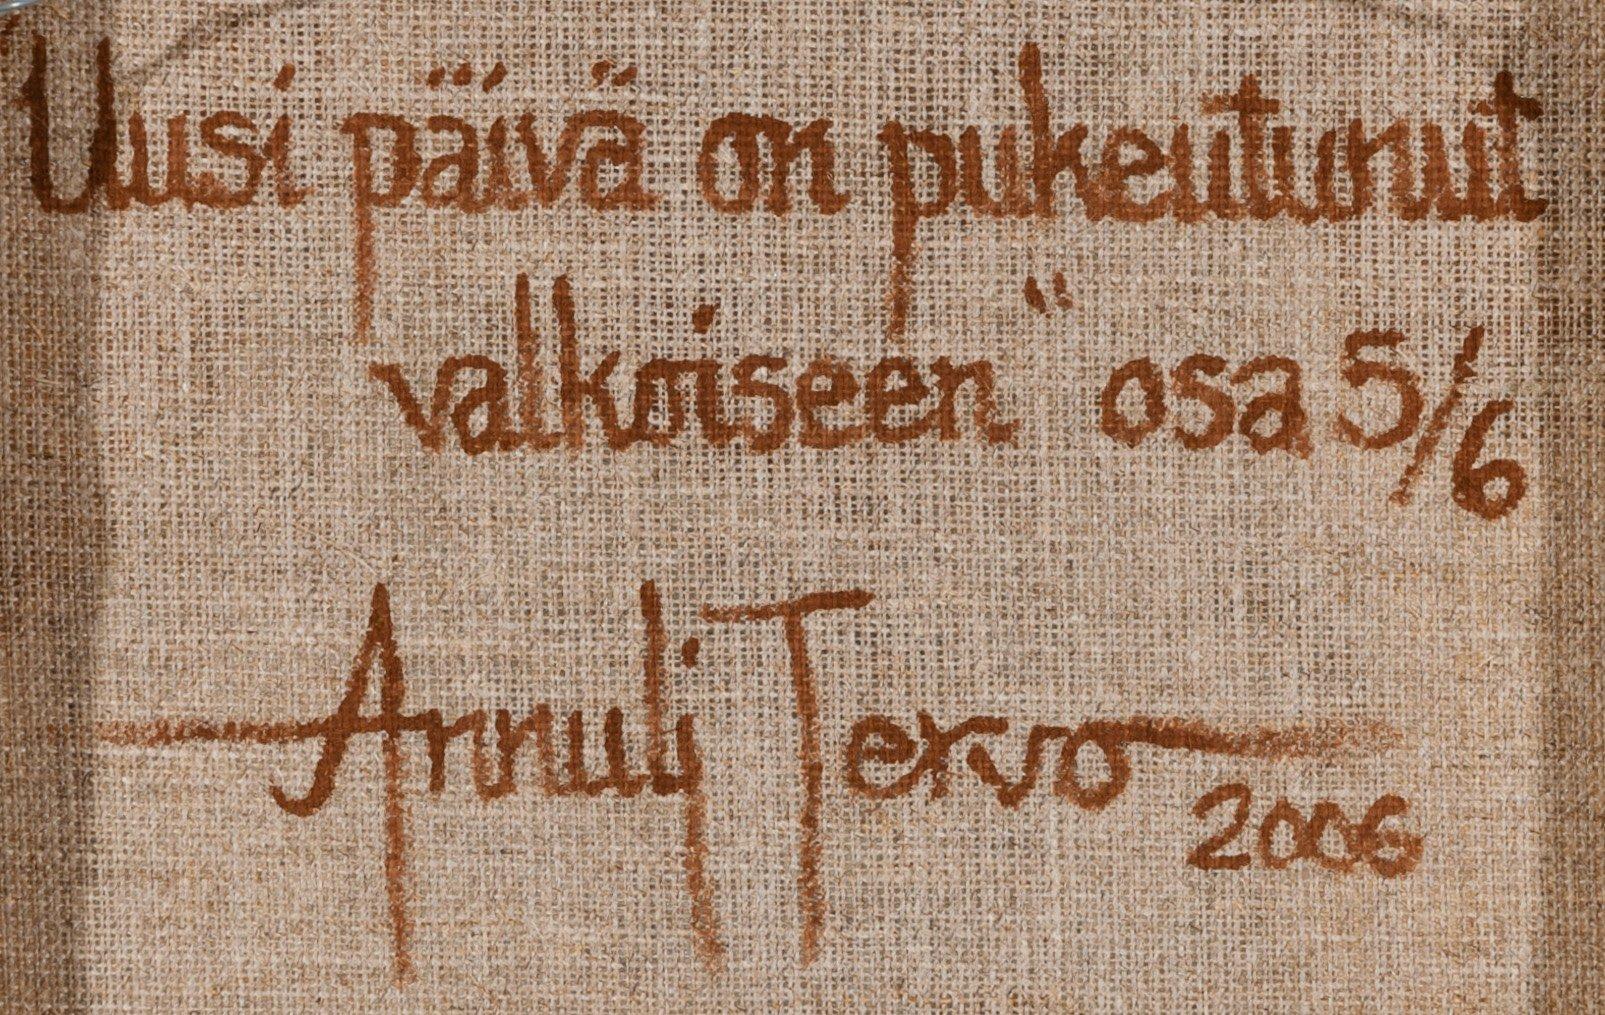 "Uusi päivä on pukeutunut
valkoiseen" osa 5/6
Annulj Tervo
2006